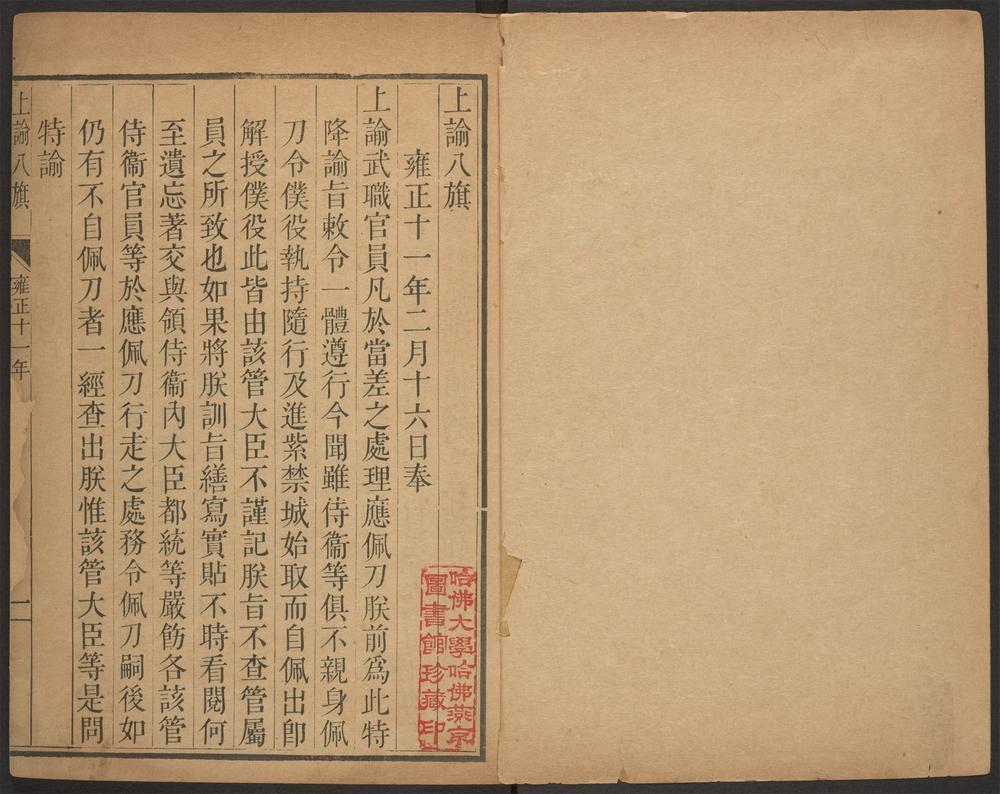 上諭八旗
雍正十一年二月十六日奉
上諭武職官員凡於當差之處理應佩刀朕前爲此特
降諭旨敕令一體遵行今聞雖侍衞等俱不親身佩
刀令僕役執持隨行及進紫禁城始取而自佩出卽
解授僕役此皆由該管大臣不謹記朕旨不查管屬
員之所致也如果將朕訓旨繕寫實貼不時看閱何
至遺忘著交與領侍衞內大臣都統等嚴飭各該管
侍衞官員等於應佩刀行走之處務令佩刀嗣後如
仍有不自佩刀者一經查出朕惟該管大臣等是問
特諭
上諭八旗
雍正十一年
一
哈佛大學哈佛燕京
圖書館珍藏印